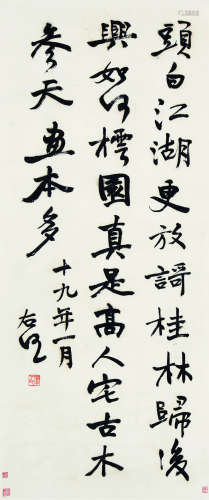 頭白江湖更放謌桂林歸後
興如何樗園真是高人宅古木
參天畫本多
十九年一月
右任